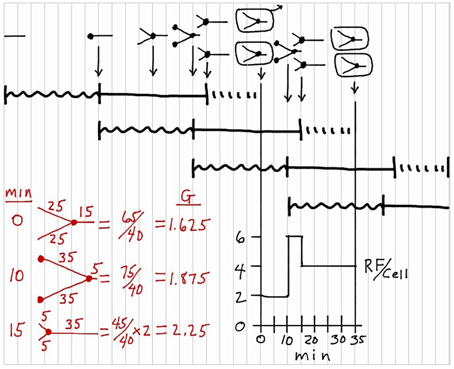 min
G
0 25 15 25 = 65/40 = 1.625
10 35 5 35 = 75/40 = 1.875
15 5 35 5 = 45/40 × 2 = 2.25
6
4 RF/Cell
2
0
0 10 20 30 35
min